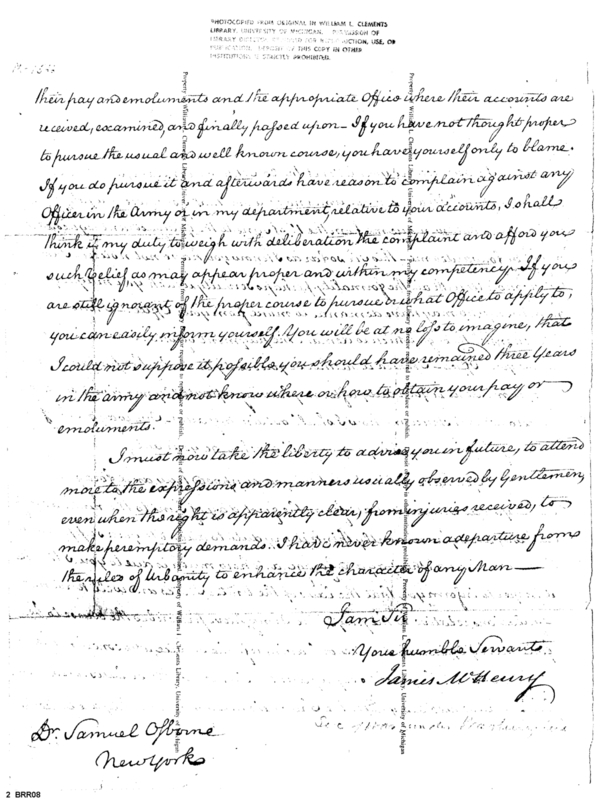 PHOTOCOPIED FROM ORIGINAL IN WILLIAM L. CLEMENTS
LIBRARY, UNIVERSITY OF MICHIGAN. PERMISSION OF
LIBRARY REPRODUCTION, USE, OR
THIS COPY IN OTHER
INSTITUTIONS STRICTLY PROHIBITED.
their pay and emoluments and the appropriate Office where their accounts are
received, examined, and finally passed upon — If you have not thought proper
to pursue the usual and well known course, you have yourself only to blame.
If you do pursue it and afterwards have reason to complain against any
Officer in the Army or in my department, relative to your accounts, I shall
think it my duty to weigh with deliberation the complaint and afford you
such relief as may appear proper and within my competency. If you
are still ignorant of the proper course to pursue or what Office to apply to,
you can easily inform yourself. You will be at no loss to imagine, that
I could not suppose it possible you should have remained three Years
in the army and not know where or how to obtain your pay or
emoluments.
I must now take the liberty to advise you in future, to attend
more to the expressions and manners usually observed by Gentlemen,
even when the right is apparently clear, from injuries received, to
make peremptory demands. I have never known a departure from
the rules of Urbanity to enhance the character of any Man —
I am Sir
Your humble Servant
James McHenry
Dr. Samuel Osborne
New York
Property of William L. Clements Library, University of Michigan
2 BRR08